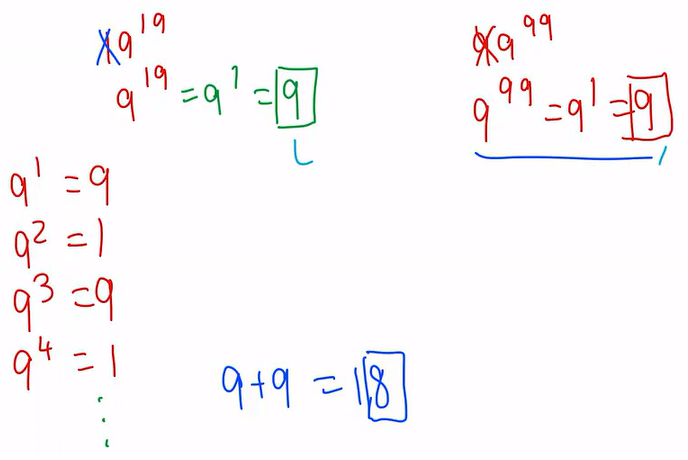 19^19
9^19 = 9^1 = 9
99^99
9^99 = 9^1 = 9
9^1 = 9
9^2 = 1
9^3 = 9
9^4 = 1
⋮
9+9 = 18